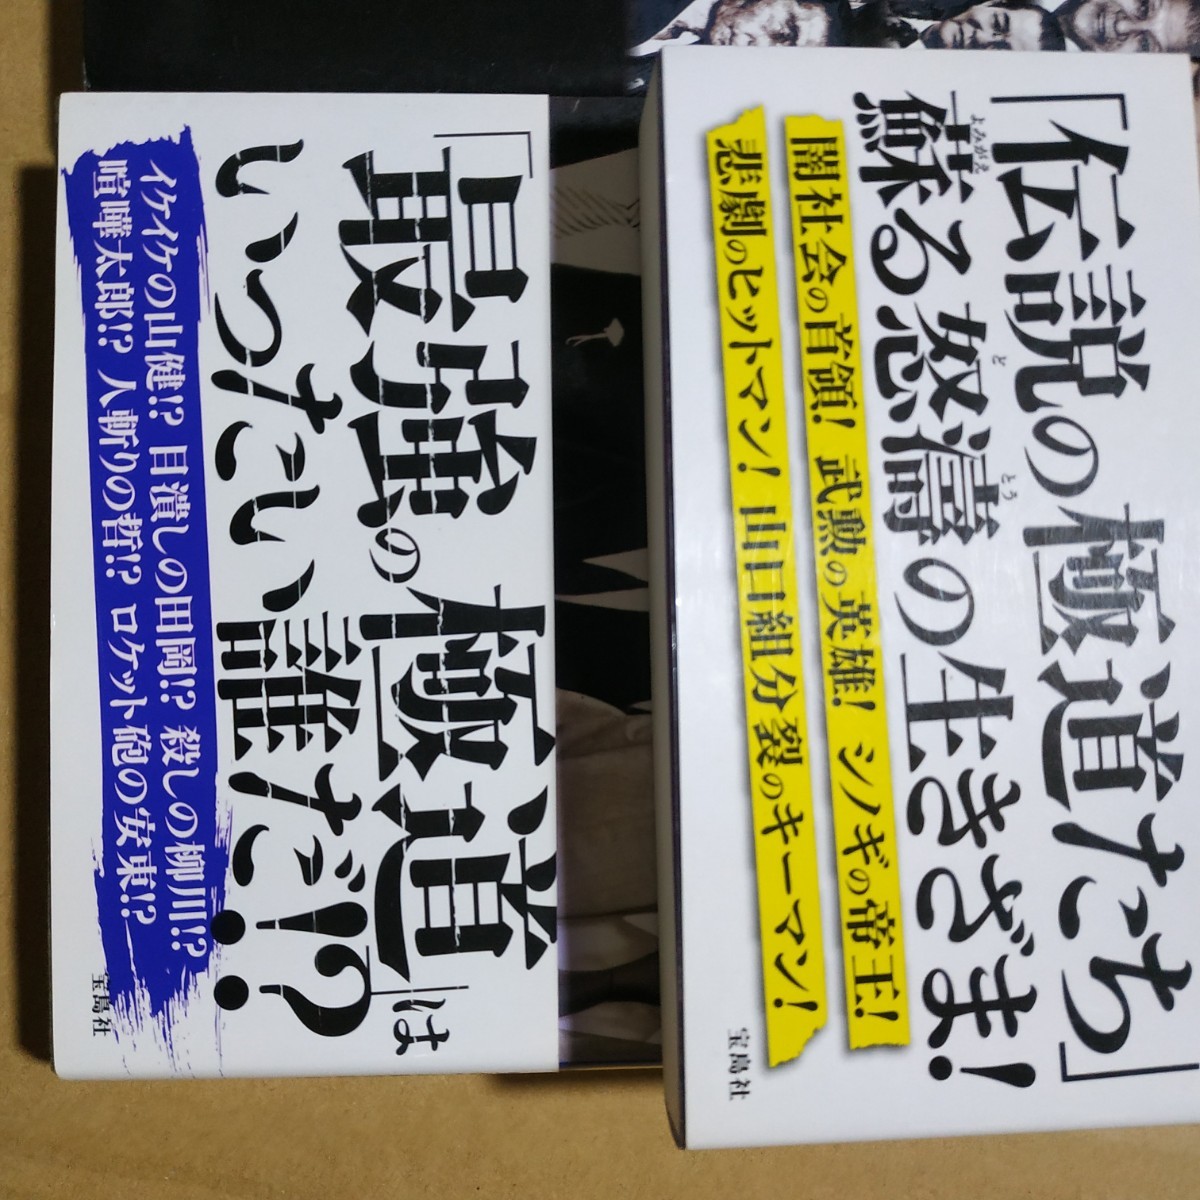 「伝説の極道たち」
よみがえ ど とう
蘇る怒濤の生きざま!
闇社会の首領! 武勲の英雄! シノギの帝王!
悲劇のヒットマン! 山口組分裂のキーマン!
宝島社
「最強の極道」は
いったい誰だ!?
イケイケの山健!? 目潰しの田岡!? 殺しの柳川!?
喧嘩太郎!? 人斬りの哲!? ロケット砲の安東!?
宝島社